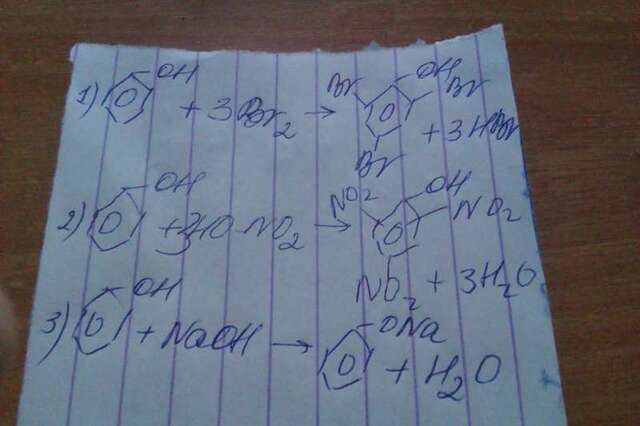 1) OH + 3Br2 → Br OH Br Br + 3HBr
2) OH + 3HO-NO2 → NO2 OH NO2 NO2 + 3H2O
3) OH + NaOH → ONa + H2O